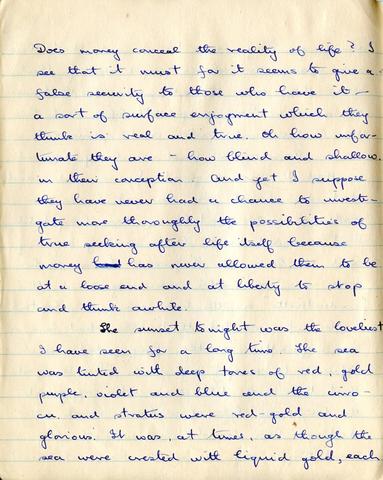 Does money conceal the reality of life? I
see that it must for it seems to give a
false security to those who have it -
a sort of surface enjoyment which they
think is real and true. Oh how unfor-
tunate they are - how blind and shallow
in their conception. And yet I suppose
they have never had a chance to investi-
gate more thoroughly the possibilities of
true seeking after life itself because
money has never allowed them to be
at a loose end and at liberty to stop
and think awhile.
The sunset tonight was the loveliest
I have seen for a long time. The sea
was tinted with deep tones of red, gold
purple, violet and blue and the cirro-
cu. and stratus were red-gold and
glorious. It was, at times, as though the
sea were crested with liquid gold, each